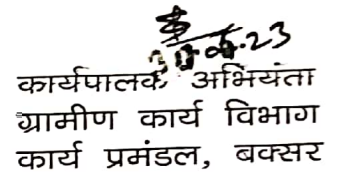 कार्यपालक अभियंता
ग्रामीण कार्य विभाग
कार्य प्रमंडल, बक्सर